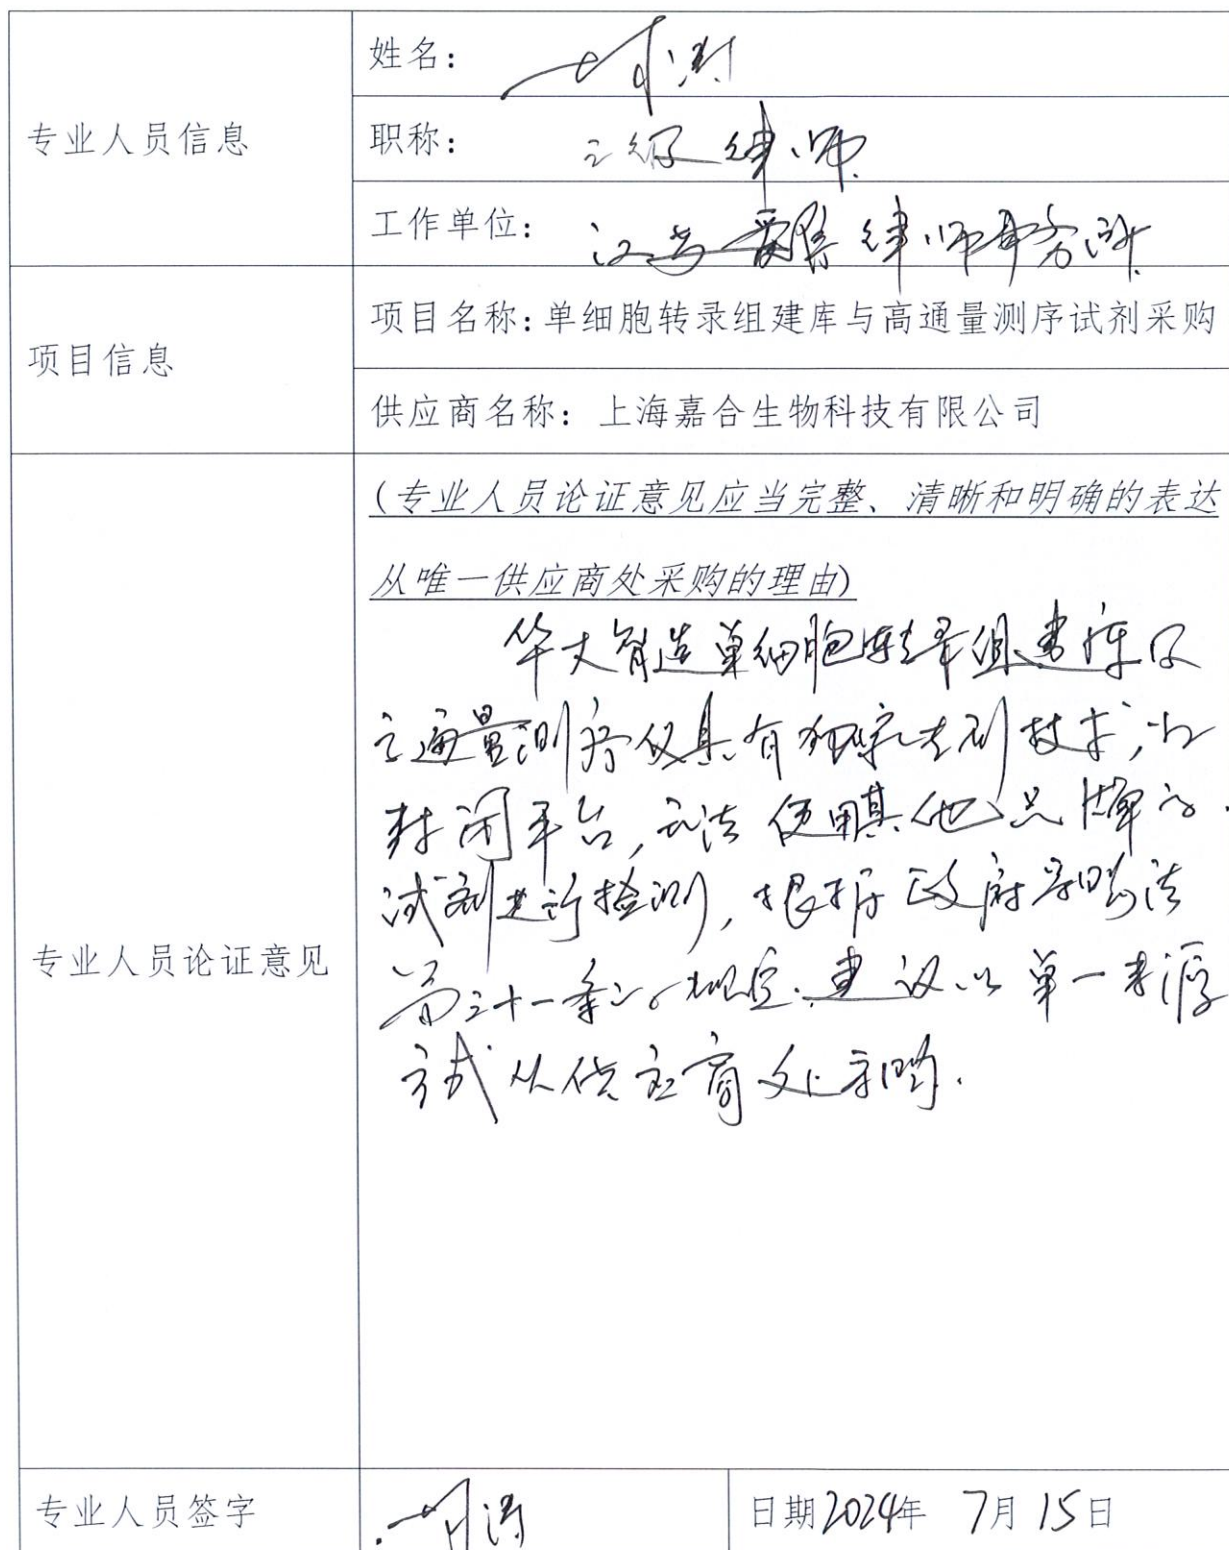 姓名：
专业人员信息
职称： 律师
工作单位： 江苏 律师事务所
项目信息
项目名称：单细胞转录组建库与高通量测序试剂采购
供应商名称：上海嘉合生物科技有限公司
(专业人员论证意见应当完整、清晰和明确的表达
从唯一供应商处采购的理由)
华大智造单细胞转录组建库及
高通量测序仪具有独家专利技术，为
封闭平台，无法使用其他品牌的
试剂进行检测，根据政府采购法
第三十一条之规定，建议以单一来源
方式从供应商处采购.
专业人员论证意见
专业人员签字
日期2024年 7月 15日